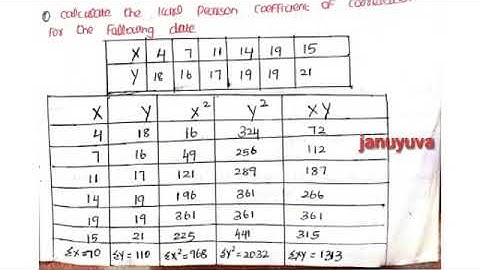 ① Calculate the Karl Pearson Coefficient of
for the Following date
X 4 7 11 14 19 15
Y 18 16 17 19 19 21
X Y X² Y² XY
4 18 16 324 72
7 16 49 256 112
januyuva
11 17 121 289 187
14 19 196 361 266
19 19 361 361 361
15 21 225 441 315
Σx=70 Σy=110 Σx²=968 Σy²=2032 Σxy=1313